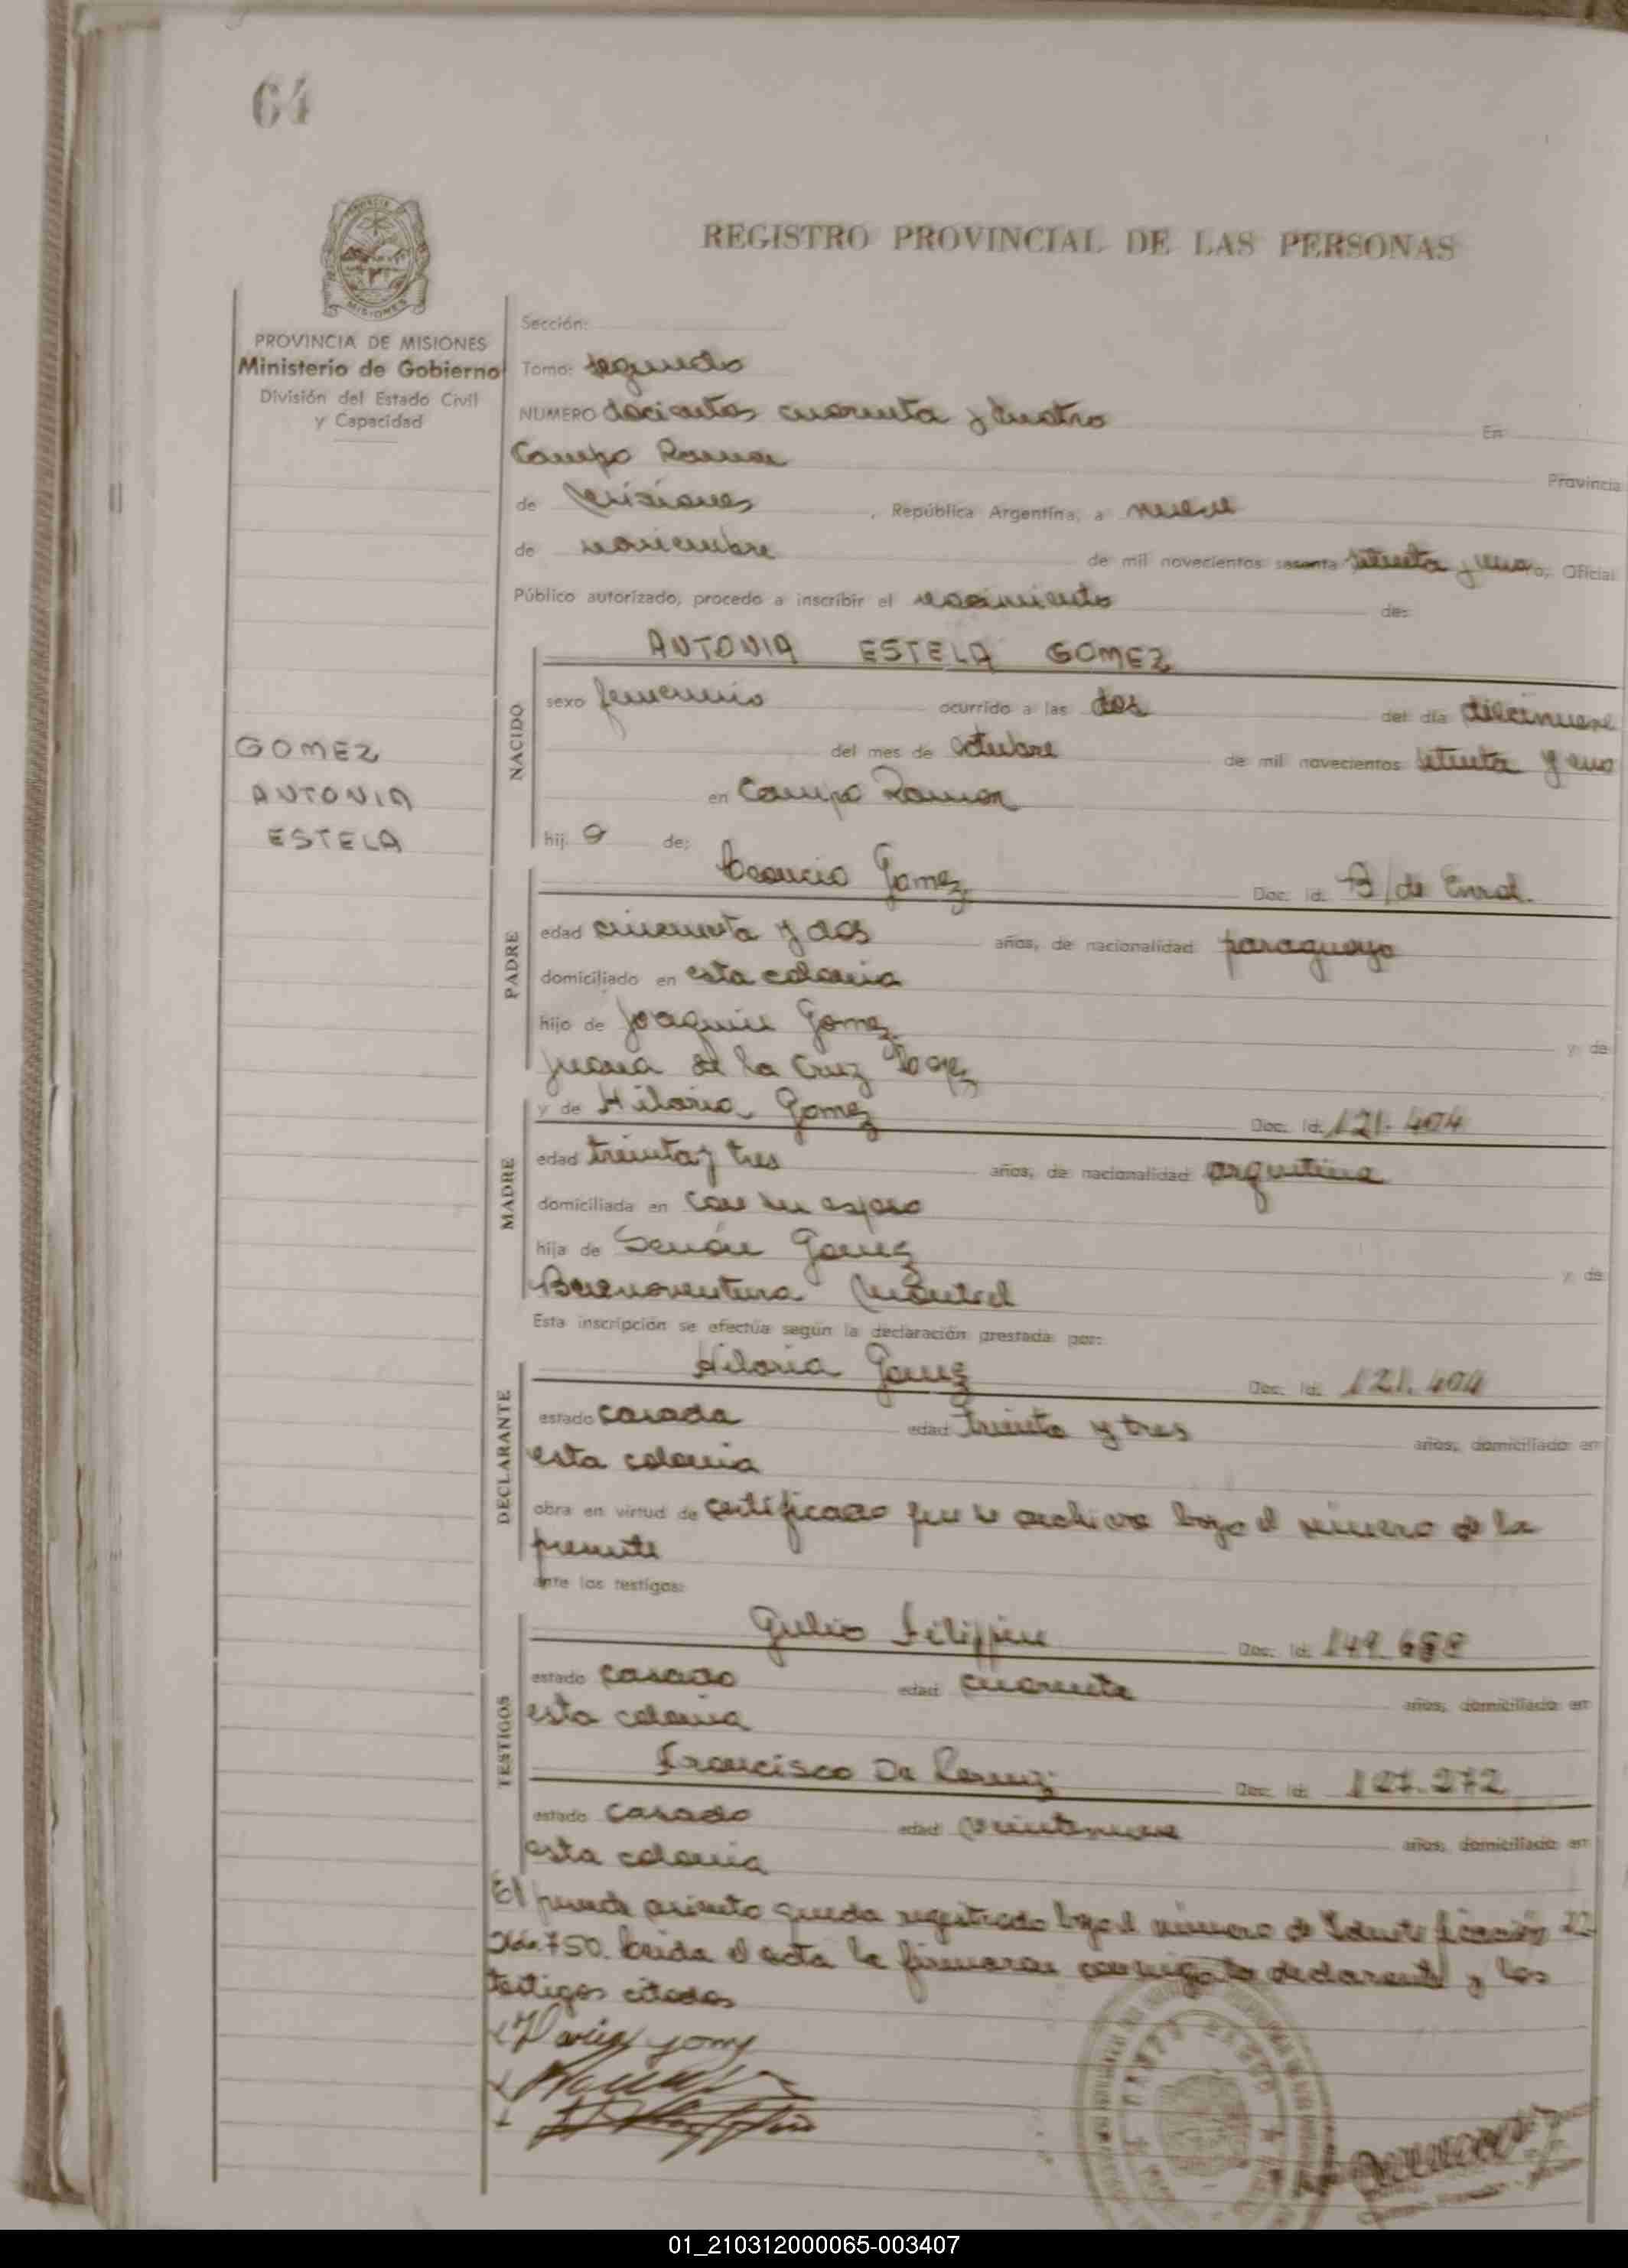 64
REGISTRO PROVINCIAL DE LAS PERSONAS
PROVINCIA DE MISIONES
Ministerio de Gobierno
División del Estado Civil
y Capacidad
GOMEZ
ANTONIA
ESTELA
Sección:
Tomo: segundo
NUMERO docientos cuarenta y cuatro En
Campo Ramon Provincia
de Misiones, República Argentina, a nueve
de noviembre de mil novecientos sesenta setenta y uno, Oficial
Público autorizado, procedo a inscribir el nacimiento de:
NACIDO
ANTONIA ESTELA GOMEZ
sexo femenino ocurrido a las dos del día diecinueve
del mes de octubre de mil novecientos setenta y uno
en Campo Ramon
hij a de:
PADRE
Gomez Doc. Id. B/de Enrol.
edad cincuenta y dos años, de nacionalidad paraguayo
domiciliado en esta colonia
hijo de Joaquin Gomez y de
Juana de la Cruz
MADRE
y de Hilaria Gomez Doc. Id. 121.404
edad treinta y tres años, de nacionalidad argentina
domiciliada en con su esposo
hija de Gomez y de
Buenaventura
Esta inscripción se efectúa según la declaración prestada por:
DECLARANTE
Hilaria Gomez Doc. Id. 121.404
estado casada edad treinta y tres años, domiciliado en
esta colonia
obra en virtud de certificado que se archiva bajo el número de la
presente
ante los testigos:
TESTIGOS
Gulio Filippin Doc. Id. 149.688
estado casado edad cuarenta años, domiciliado en
esta colonia
Francisco De Doc. Id. 127.272
estado casado edad veintinueve años, domiciliado en
esta colonia
El presente asiento queda registrado bajo el número de Identificación 22.
750. Leida el acta la firmaron conmigo la declarante y los
testigos citados
01_210312000065-003407